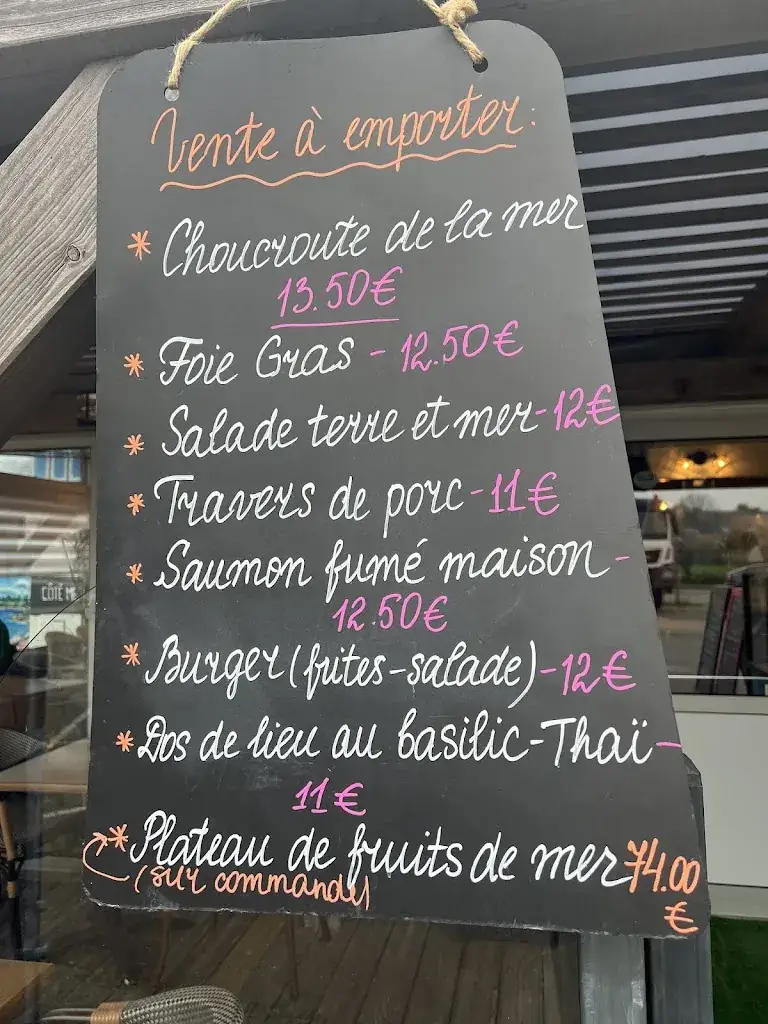 Vente à emporter:
* Choucroute de la mer
13.50€
* Foie Gras - 12.50€
* Salade terre et mer - 12€
* Travers de porc - 11€
* Saumon fumé maison -
12.50€
* Burger (frites-salade) - 12€
* Dos de lieu au basilic-Thaï -
11€
* Plateau de fruits de mer 74.00
€
(sur commande)
CÔTÉ